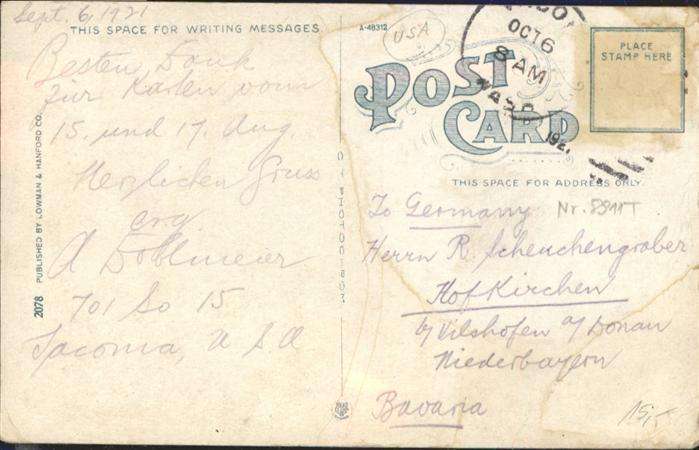 Sept. 6, 1921
THIS SPACE FOR WRITING MESSAGES
Besten Dank
für Karten vom
15. und 17. Aug
Herzlichen Gruss
erg
A Doblmeier
701 So 15
Tacoma, U S A
2078 PUBLISHED BY LOWMAN & HANFORD CO.
A-48312
USA
OCT 6
8 AM
WASH
192
POST CARD
PLACE
STAMP HERE
THIS SPACE FOR ADDRESS ONLY
To Germany
Herrn R. Scheuchengraber
Hofkirchen
b/ Vilshofen a/Donau
Niederbayern
Bavaria
15,-